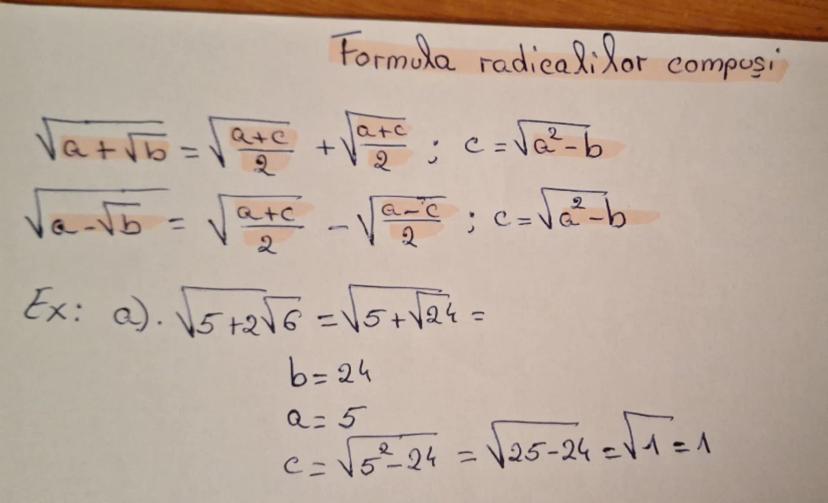 Formula radicalilor compuși
√(a+√b) = √((a+c)/2) + √((a+c)/2) ; c = √(a²-b)
√(a-√b) = √((a+c)/2) - √((a-c)/2) ; c = √(a²-b)
Ex: a). √(5+2√6) = √(5+√24) =
b = 24
a = 5
c = √(5²-24) = √(25-24) = √1 = 1